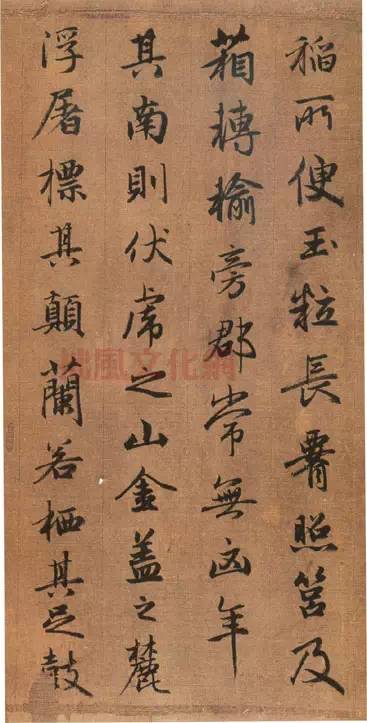 稻所便玉粒長腰照筥及
箱轉輸旁郡常無凶年
其南則伏虎之山金盖之麓
浮屠標其顛蘭若栖其足鼓
風文化網